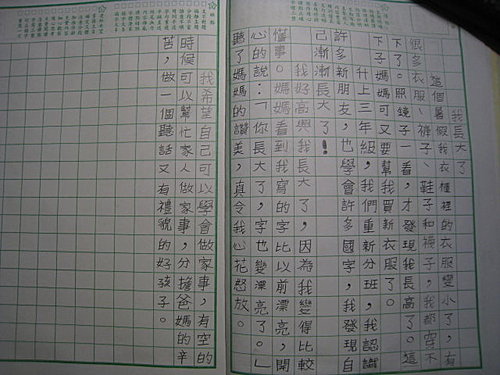 我長大了
這個暑假我衣櫃裡的衣服變小了，有
很多衣服、褲子、鞋子和襪子，我都穿不
下了。照鏡子一看，才發現我長高了。這
下媽媽可又要幫我買新衣服了。
升上三年級，我們重新分班，我認識
許多新朋友，也學會許多國字，我發現自
己漸漸長大了！
我好高興我長大了，因為我變得比較
懂事。媽媽看到我寫的字比以前漂亮，開
心的說：「你長大了，字也變漂亮了。」
聽了媽媽的讚美，真令我心花怒放。
我希望自己可以學會做家事，有空的
時候可以幫忙家人做家事，分擔爸媽的辛
苦，做一個聽話又有禮貌的好孩子。